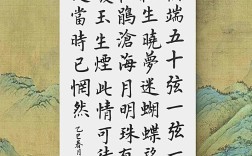 端五十弦一弦一
生曉夢迷蝴蝶
鵑滄海月明珠有
玉生煙此情可待
當時已惘然
乙巳春月